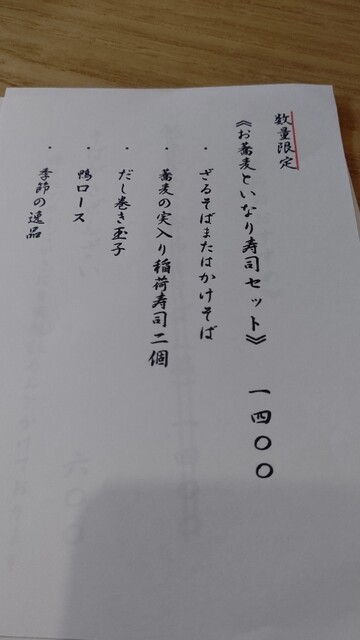 数量限定
《お蕎麦といなり寿司セット》 一四〇〇
・ざるそばまたはかけそば
・蕎麦の実入り稲荷寿司二個
・だし巻き玉子
・鴨ロース
・季節の逸品